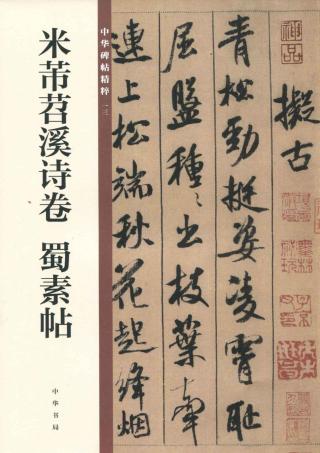 米芾苕溪诗卷 蜀素帖
中华书局
中华碑帖精粹 一三
神品
擬古
青松勁挺姿凌霄恥
屈盤種〻出枝葉牽
連上松端秋花起絳烟